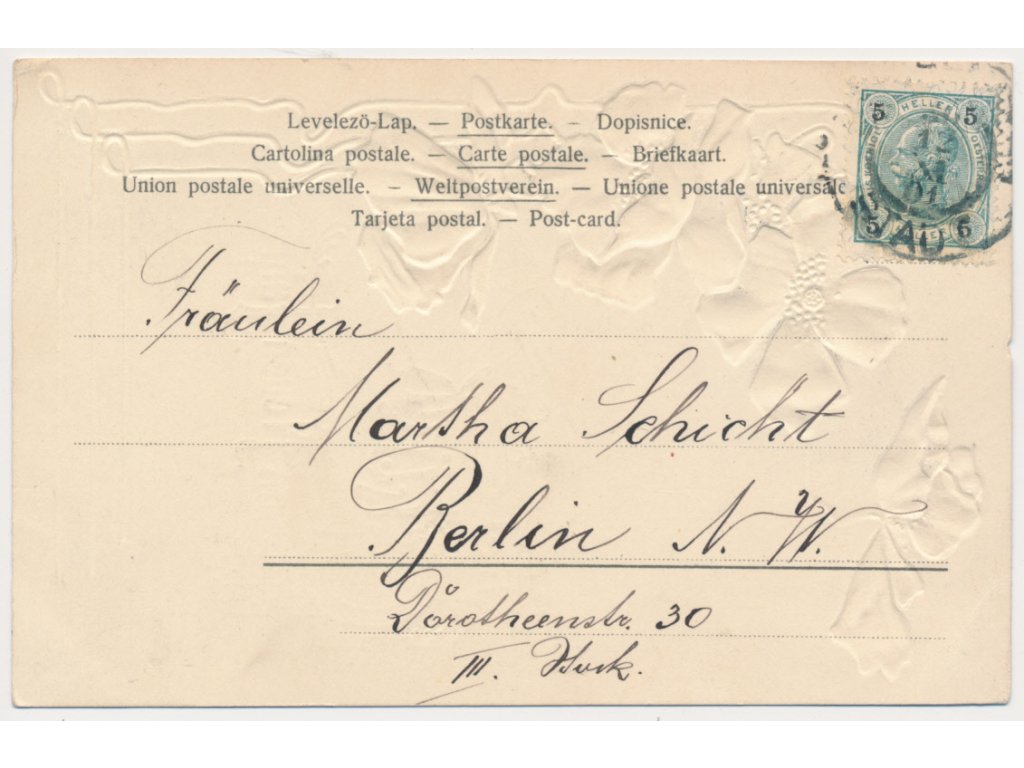 Levelezö-Lap. — Postkarte. — Dopisnice.
Cartolina postale. — Carte postale. — Briefkaart.
Union postale universelle. – Weltpostverein. — Unione postale universale
Tarjeta postal. — Post-card.
5 HELLER 5
5 5
Fräulein
Martha Schicht
Berlin N. W.
Dorotheenstr. 30
III. Stock.